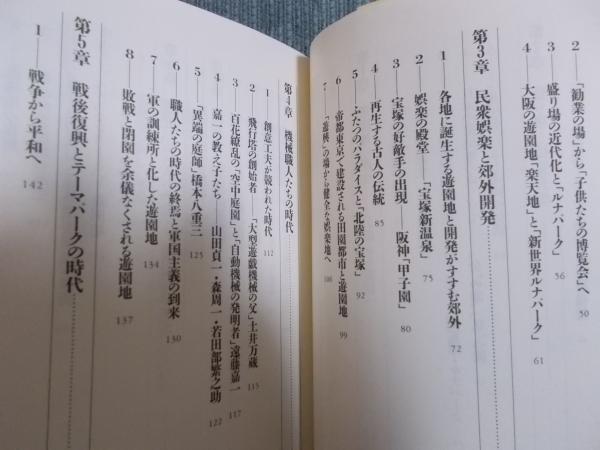 2──「勧業の場」から「子供たちの博覧会」へ 50
3──盛り場の近代化と「ルナパーク」 56
4──大阪の遊園地「楽天地」と「新世界ルナパーク」 61
第3章 民衆娯楽と郊外開発
1──各地に誕生する遊園地と開発がすすむ郊外 72
2──娯楽の殿堂──「宝塚新温泉」 75
3──宝塚の好敵手の出現──阪神「甲子園」 80
4──再生する古人の伝統 85
5──ふたつのパラダイスと「北陸の宝塚」 92
6──帝都東京で建設される田園都市と遊園地 99
7──「遊興」の場から健全な娯楽地へ 106
第4章 機械職人たちの時代
1──創意工夫が競われた時代 112
2──飛行塔の創始者──「大型遊戯機械の父」土井万蔵 115
3──百花繚乱の「空中庭園」と「自動機械の発明者」遠藤嘉一 117
4──嘉一の教え子たち──山田貞一・森周一・若田部繁之助 122
5──「異端の庭師」橋本八重三 125
6──職人たちの時代の終焉と軍国主義の到来 130
7──軍の訓練所と化した遊園地 134
8──敗戦と閉園を余儀なくされる遊園地 137
第5章 戦後復興とテーマパークの時代
1──戦争から平和へ 142